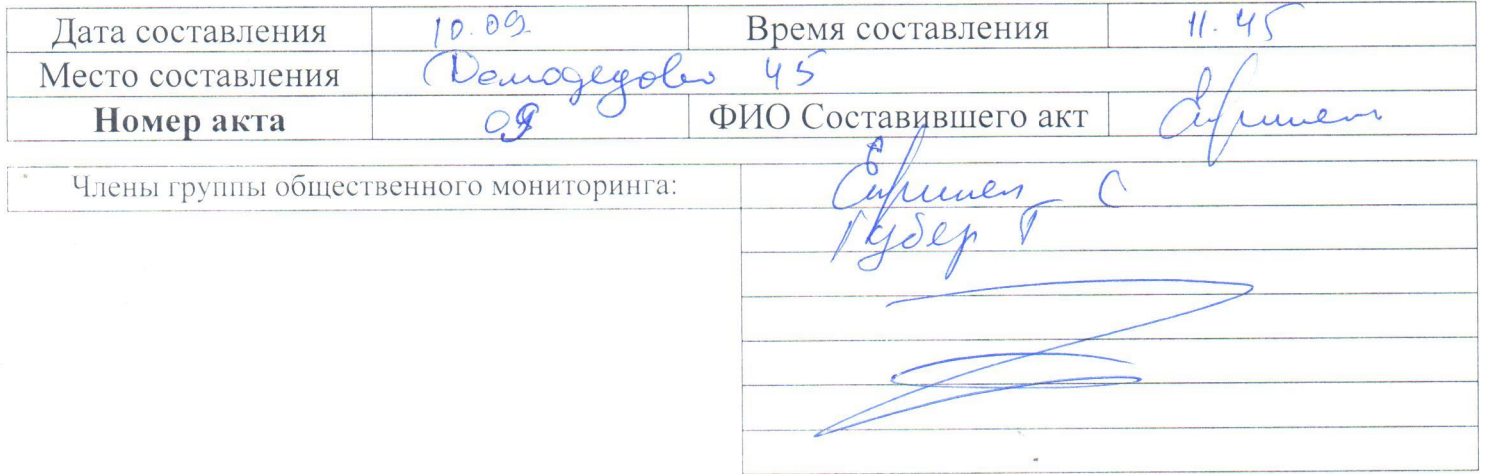 Дата составления 10.09. Время составления 11.45
Место составления Домодедово 45
Номер акта 09 ФИО Составившего акт
Члены группы общественного мониторинга: С
Губер Т